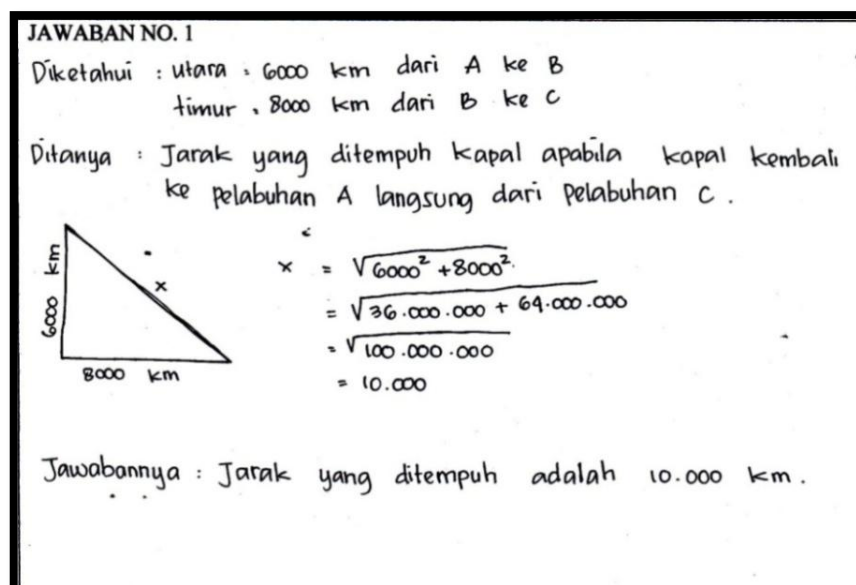 JAWABAN NO. 1
Diketahui : utara : 6000 km dari A ke B
timur : 8000 km dari B ke C
Ditanya : Jarak yang ditempuh kapal apabila kapal kembali
ke pelabuhan A langsung dari pelabuhan C.
6000 km
x
8000 km
x = √6000² + 8000²
= √36.000.000 + 64.000.000
= √100.000.000
= 10.000
Jawabannya : Jarak yang ditempuh adalah 10.000 km.